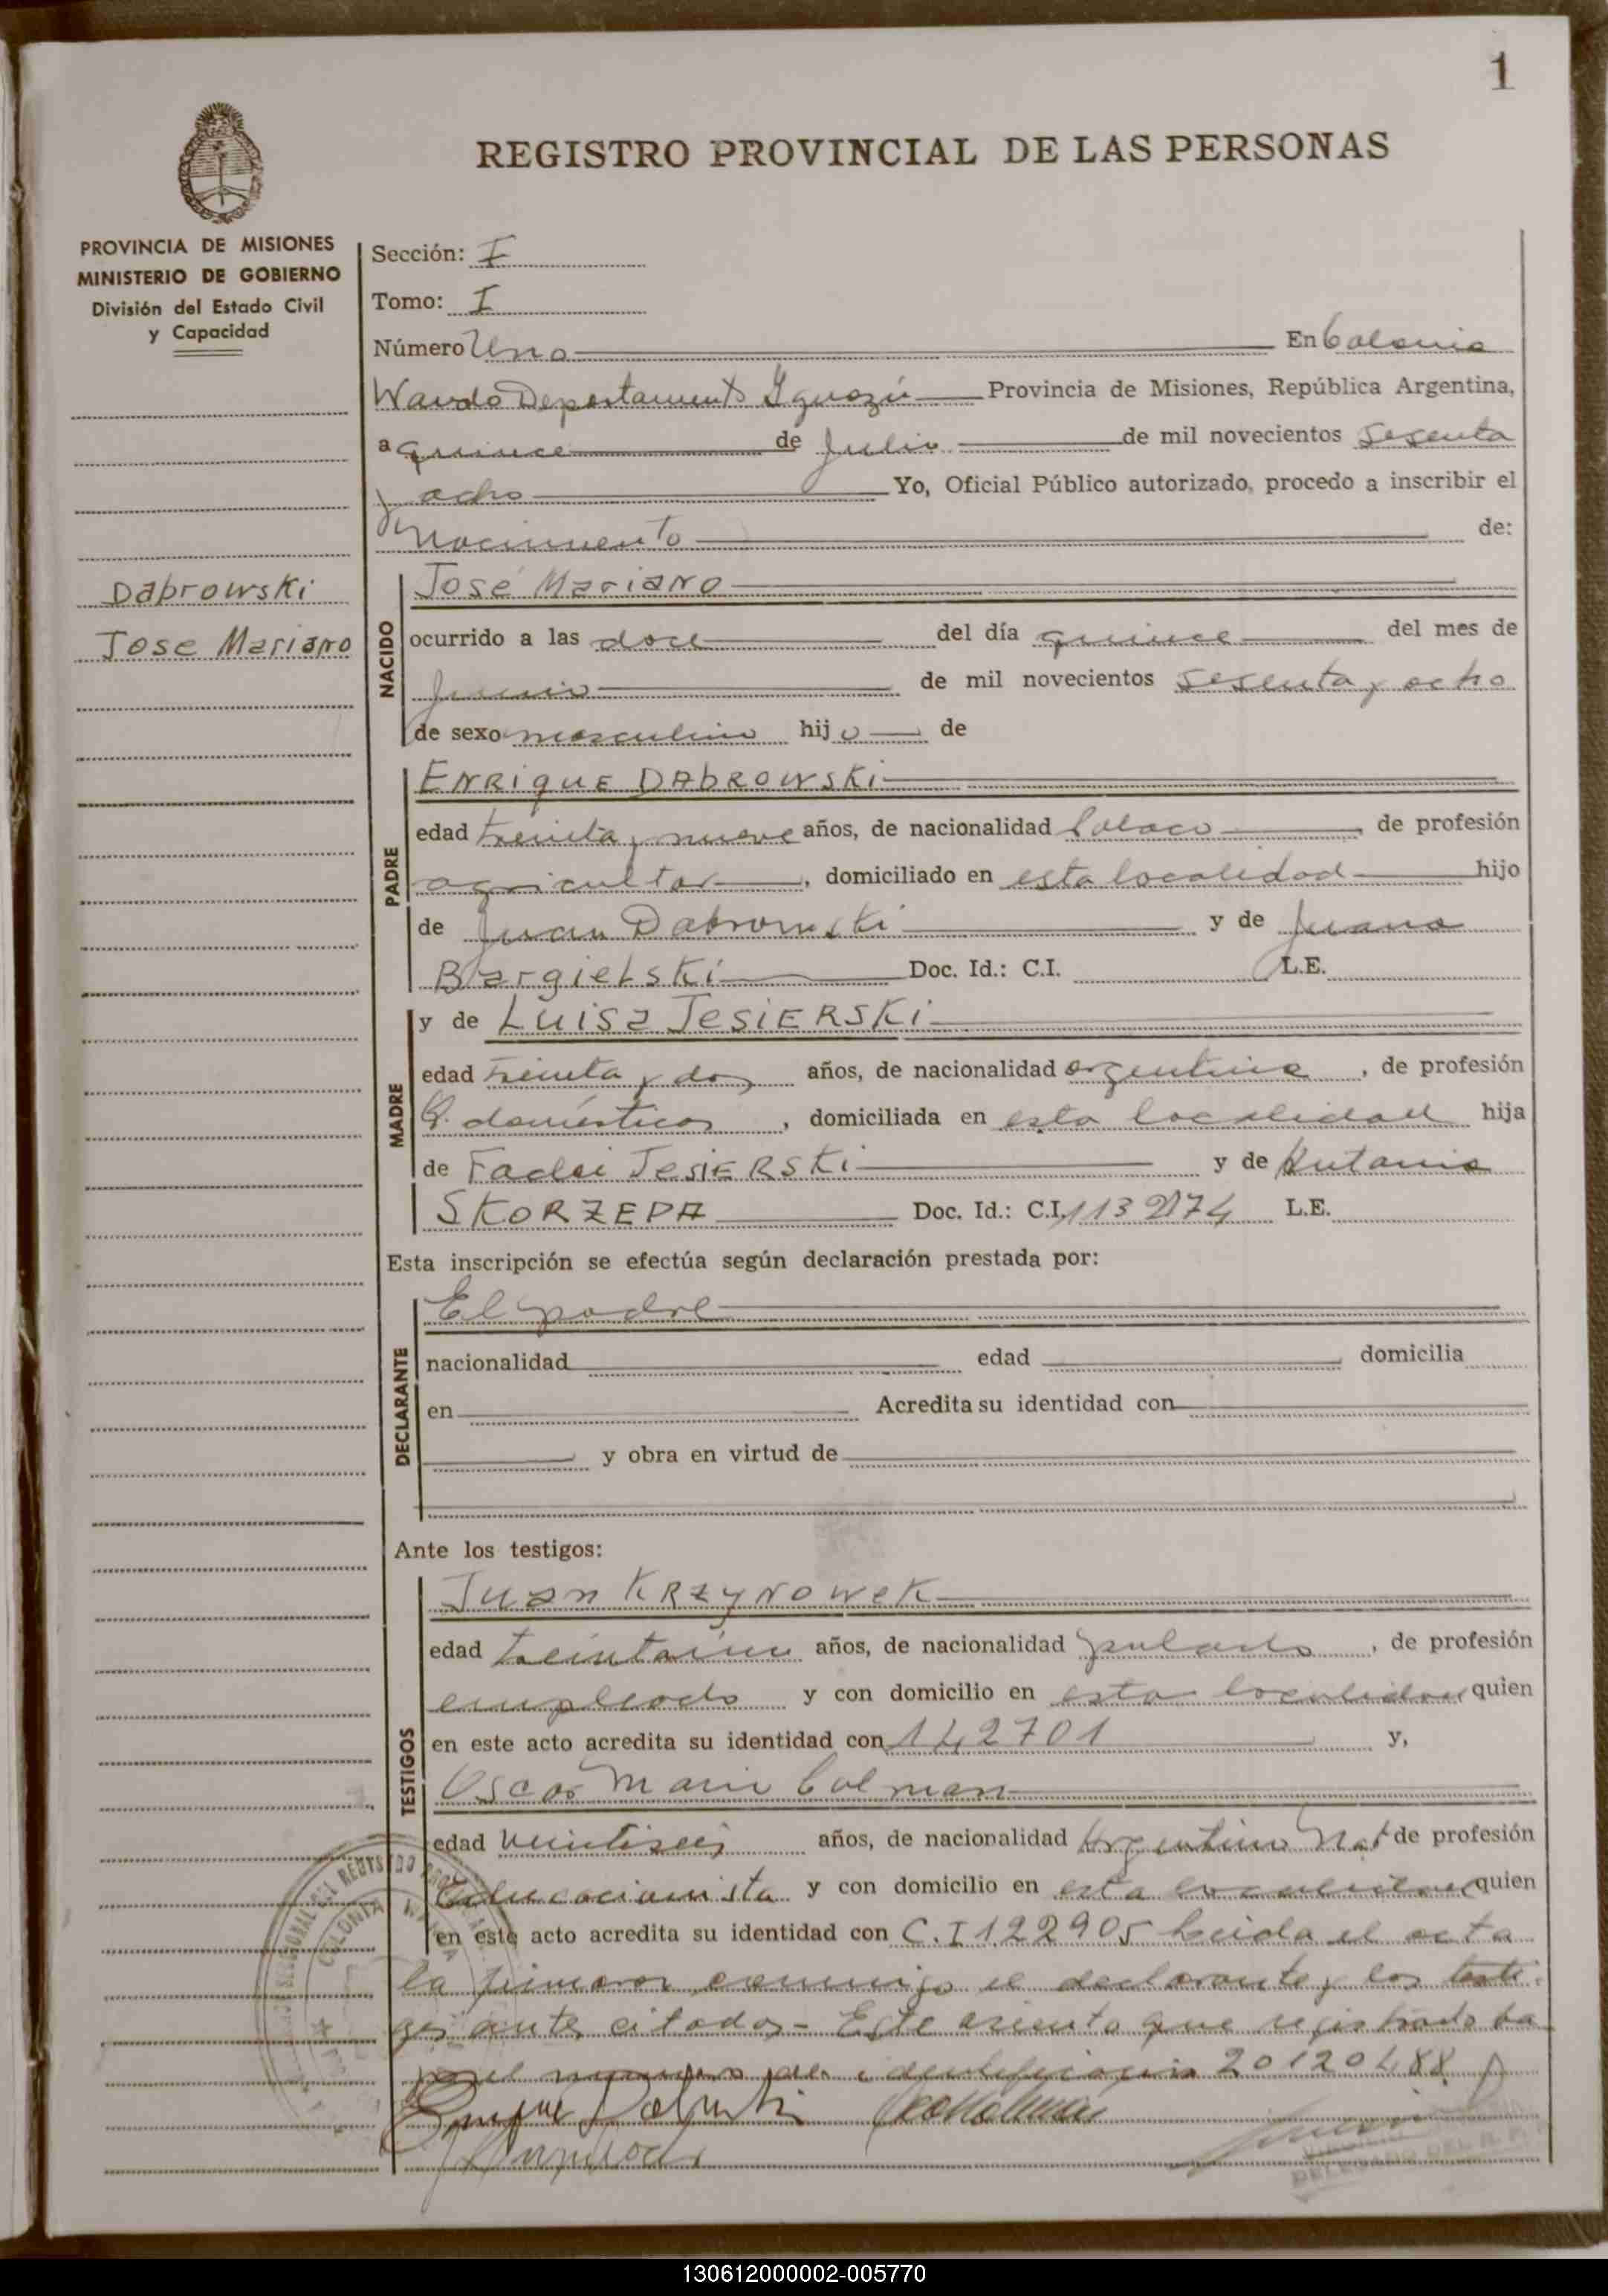 1
REGISTRO PROVINCIAL DE LAS PERSONAS
PROVINCIA DE MISIONES
MINISTERIO DE GOBIERNO
División del Estado Civil
y Capacidad
Dabrowski
Jose Mariano
Sección: I
Tomo: I
Número Uno En Colonia
Wanda Departamento Iguazú Provincia de Misiones, República Argentina,
a quince de Julio de mil novecientos sesenta
y ocho Yo, Oficial Público autorizado, procedo a inscribir el
Nacimiento de:
NACIDO
José Mariano
ocurrido a las doce del día quince del mes de
junio de mil novecientos sesenta y ocho
de sexo masculino hijo de
PADRE
ENRIQUE DABROWSKI
edad treinta y nueve años, de nacionalidad Polaco, de profesión
agricultor, domiciliado en esta localidad hijo
de Juan Dabrowski y de Juana
Bargielski Doc. Id.: C.I. L.E.
MADRE
y de LUISA JESIERSKI
edad treinta y dos años, de nacionalidad argentina, de profesión
Q. domésticos, domiciliada en esta localidad hija
de Fadei JESIERSKI y de Antonia
SKORZEPA Doc. Id.: C.I. L.E.
Esta inscripción se efectúa según declaración prestada por:
DECLARANTE
El padre
nacionalidad edad domicilia
en Acredita su identidad con
y obra en virtud de
Ante los testigos:
TESTIGOS
Juan KRZYNOWEK
edad años, de nacionalidad, de profesión
empleado y con domicilio en esta localidad quien
en este acto acredita su identidad con 142701 y,
Oscar Colman
edad veintiseis años, de nacionalidad Argentino Nat de profesión
Educacionista y con domicilio en esta localidad quien
en este acto acredita su identidad con C.I 122905 Leida el acta
la firmaron conmigo el declarante y los testi-
gos antes citados - Este asiento que registrado ba
el numero de identificación 20120488
130612000002-005770